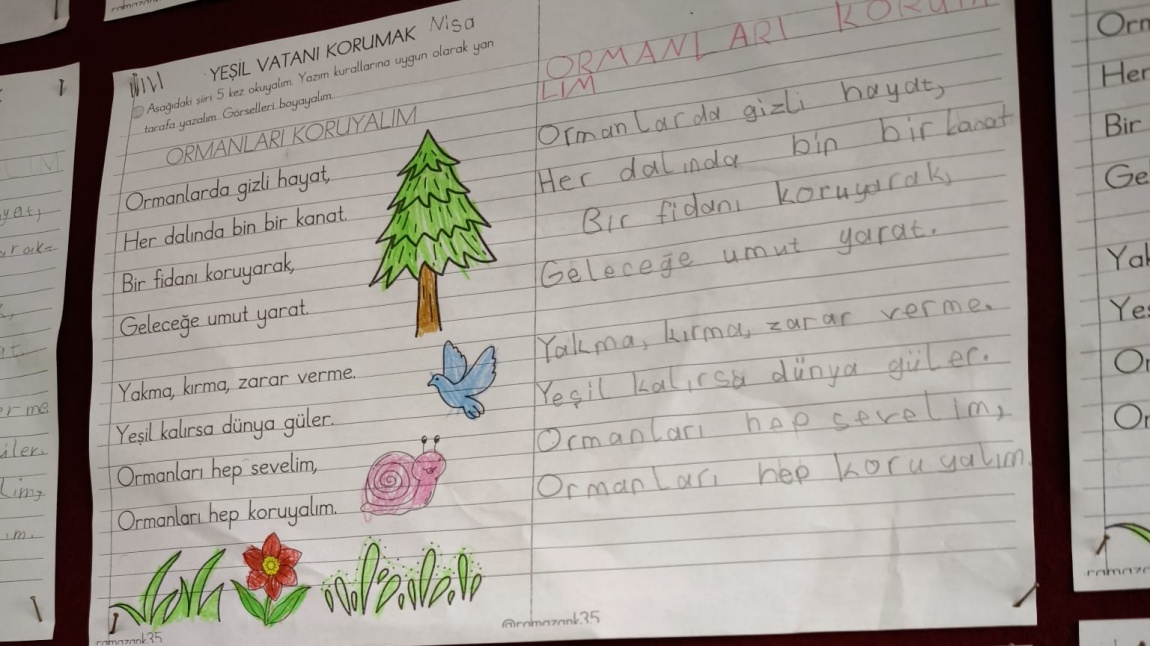 YEŞİL VATANI KORUMAK Nisa
Aşağıdaki şiiri 5 kez okuyalım. Yazım kurallarına uygun olarak yan
tarafa yazalım. Görselleri boyayalım.
ORMANLARI KORUYALIM
Ormanlarda gizli hayat,
Her dalında bin bir kanat.
Bir fidanı koruyarak,
Geleceğe umut yarat.
Yakma, kırma, zarar verme.
Yeşil kalırsa dünya güler.
Ormanları hep sevelim,
Ormanları hep koruyalım.
ramazank35
ORMANLARI
LIM
Ormanlarda gizli hayat,
Her dalında bin bir kanat
Bir fidanı koruyarak,
Geleceğe umut yarat.
Yakma, kırma, zarar verme.
Yeşil kalırsa dünya güler.
Ormanları hep sevelim,
Ormanları hep koruyalım.
@ramazank35
Her
Bir